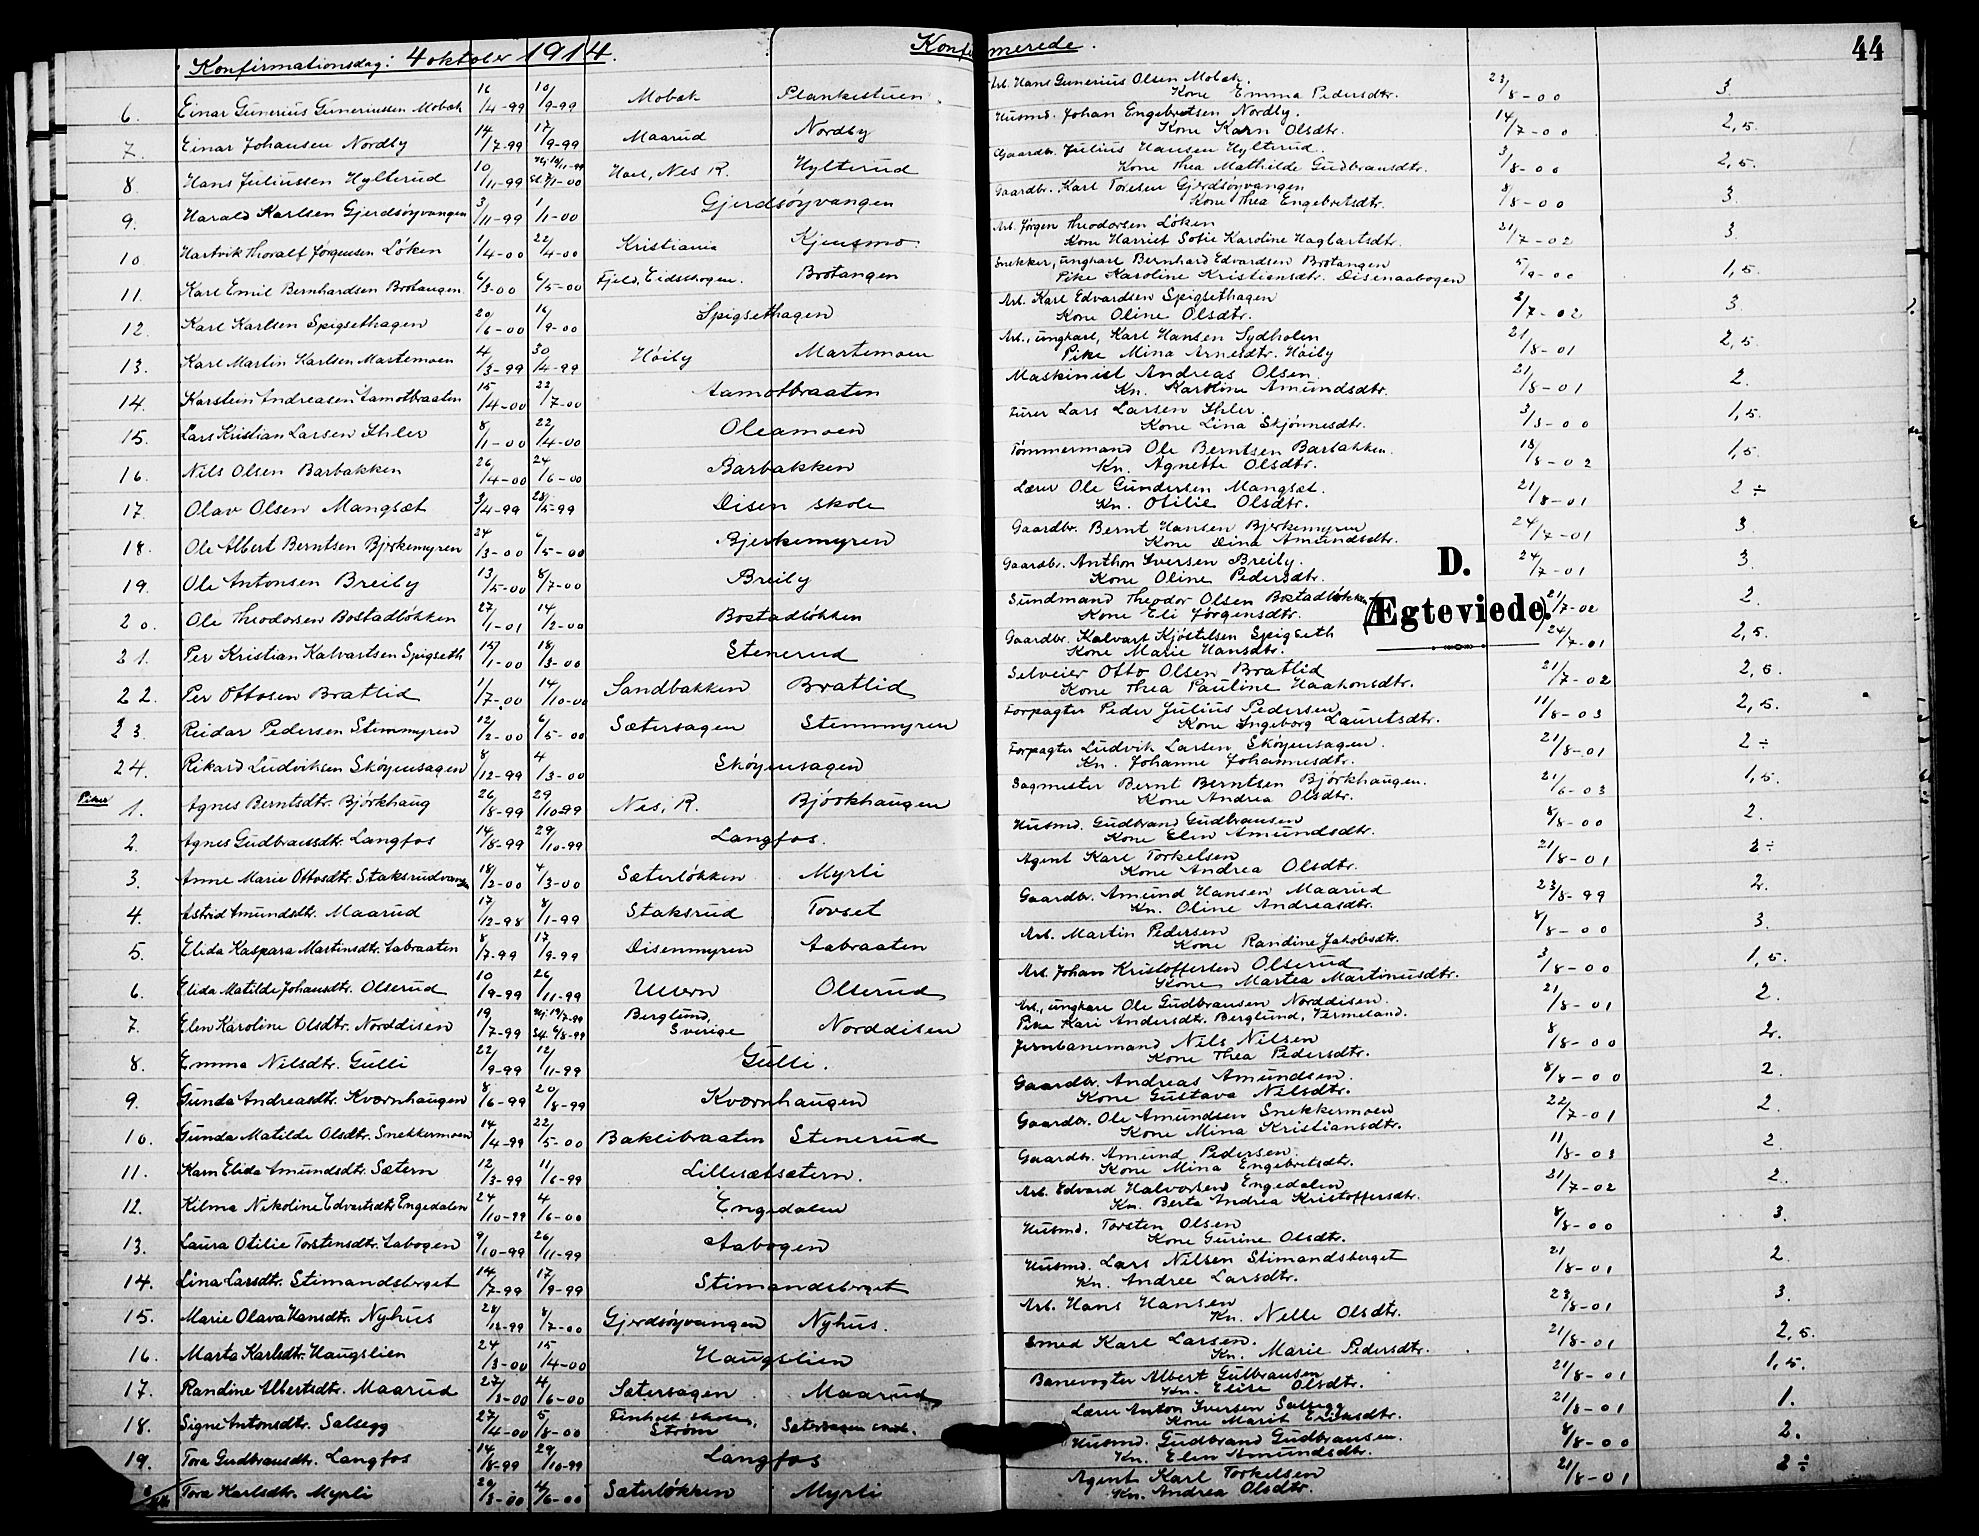 Konfirmationsdag: 4 oktober 1914. Konfirmerede. 44
6. Einar Gunerius Guneriussen Mobæk 16/4-99 10/9-99 Mobæk Plankestuen. Arb. Hans Gunerius Olsen Mobæk. Kone Emma Pedersdtr. 23/8-00 3.
7. Einar Johansen Nordby 14/7-99 17/9-99 Maarud Nordby Husmd. Johan Engebretsen Nordby. Kone Karn Olsdtr. 14/7-00 2,5.
8. Hans Juliussen Hylterud 10/11-99 Hoel, Nes R. Hylterud Gaardbr. Julius Hansen Hylterud. Kone Thea Mathilde Gudbransdtr. 3/8-00 2,5.
9. Harald Karlsen Gjerdsøyvangen 3/11-99 1/1-00 Gjerdsøyvangen Gaardbr. Karl Toresen Gjerdsøyvangen Kone Thea Engebretsdtr. 8/8-00 3.
10. Hartvik Thoralf Jørgensen Løken 1/4-00 22/4-00 Kristiania Kjensmo Arb. Jørgen Theodorsen Løken Kone Harriet Sofie Karoline Hagbartsdtr. 21/7-02 3.
11. Karl Emil Bernhardsen Brøtangen 6/3-00 6/5-00 Fjeld, Eidskogen. Brøtangen Snekker, ungkarl Bernhard Edvardsen Brøtangen Pike Karoline Kristiansdtr. Disenaabogen 5/9-00 1,5.
12. Karl Karlsen Spigsethagen 20/6-00 16/9-00 Spigsethagen Arb. Karl Edvardsen Spigsethagen Kone Oline Olsdtr. 2/7-02 3.
13. Karl Martin Karlsen Martemoen 4/3-99 30/4-99 Høiby Martemoen Arb., ungkarl, Karl Hansen Sydholen Pike Mina Arnesdtr. Høiby 21/8-01 2,5.
14. Karstein Andreasen Aamotbraaten 15/4-00 22/7-00 Aamotbraaten Maskinist Andreas Olsen. Kn. Karoline Amundsdtr. 21/8-01 2.
15. Lars Kristian Larsen Ihler 8/1-00 22/4-00 Oleamoen Lars Larsen Ihler. Kone Lina Skjønnesdtr. 3/8-00 1,5.
16. Nils Olsen Barbakken 26/4-00 24/6-00 Barbakken Tømmermand Ole Berntsen Barbakken. Kn. Agnette Olsdtr. 18/8-02 1,5.
17. Olav Olsen Mangset 3/4-99 28/5-99 Disen skole Lærer Ole Gundersen Mangset. Kn. Otilie Olsdtr. 21/8-01 2 ÷
18. Ole Albert Berntsen Bjerkemyren 24/3-00 6/5-00 Bjerkemyren Gaardbr. Bernt Hansen Bjerkemyren Kone Dina Amundsdtr. 24/7-01 3.
19. Ole Antonsen Breiby 13/5-00 8/7-00 Breiby Gaardbr. Anthon Iversen Breiby. Kone Oline Pedersdtr. 24/7-01 3.
D.
20. Ole Theodorsen Bostadløkken 27/1-01 14/2-00 Bostadløkken Sundmand Theodor Olsen Bostadløkken Kone Eli Jørgensdtr. 21/7-02 2.
(Ægteviede.)
21. Per Kristian Kalvartsen Spigseth 15/1-00 18/3-00 Stenerud Gaardbr. Kalvart Kjøstelsen Spigseth Kone Marie Hansdtr. 24/7-01 2,5.
22. Per Ottosen Bratlid 1/7-00 14/10-00 Sandbakken Bratlid Selveier Otto Olsen Bratlid Kone Thea Pauline Haakonsdtr. 21/7-02 2,5.
23. Reidar Pedersen Stemmyren 12/2-00 6/5-00 Sætersagen Stemmyren Forpagter Peder Julius Pedersen Kone Ingeborg Lauritsdtr. 11/8-03 2,5.
24. Rikard Ludviksen Skøyensagen 8/12-99 4/3-00 Skøyensagen Forpagter Ludvik Larsen Skøyensagen. Kn. Johanne Johannesdtr. 21/8-01 2 ÷
Piker 1. Agnes Berntsdtr. Bjørkhaug 26/8-99 29/10-99 Nes, R. Bjørkhaugen Sagmester Bernt Berntsen Bjørkhaugen. Kone Andrea Olsdtr. 21/6-03 1,5.
2. Agnes Gudbransdtr. Langfos 14/8-99 29/10-99 Langfos. Husmd. Gudbrand Gudbransen Kone Elen Amundsdtr. 8/8-00 2.
3. Anne Marie Ottosdtr. Staksrudvangen 18/2-00 4/3-00 Sæterløkken Myrli Agent Karl Torkelsen Kone Andrea Olsdtr. 21/8-01 2 ÷
4. Astrid Amundsdtr. Maarud 17/12-98 8/1-99 Staksrud Tovset Gaardbr. Amund Hansen Maarud Kn. Oline Andreasdtr. 23/8-99 2.
5. Elida Kaspara Martinsdtr. Aabraaten 8/7-99 17/9-99 Disenmyren Aabraaten Arb. Martin Pedersen Kone Randine Jakobsdtr. 8/8-00 3.
6. Elida Matilde Johansdtr. Olserud 10/9-99 26/11-99 Ulvern Olserud Arb. Johan Kristoffersen Olserud Kone Martea Martinusdtr. 3/8-00 1,5.
7. Elen Karoline Olsdtr. Norddisen 19/7-99 Berglund, Sverige Norddisen Arb., ungkarl Ole Gudbransen Norddisen. Pike Kari Andersdtr. Berglund, Vermeland. 21/8-01 2.
8. Emma Nilsdtr. Gulli 22/9-99 12/11-99 Gulli. Jernbanemand Nils Nilsen Kone Thea Pedersdtr. 8/8-00 2.
9. Gunda Andreasdtr. Kvornhaugen 8/6-99 20/8-99 Kvornhaugen Gaardbr. Andreas Amundsen. Kone Gustava Nilsdtr. 8/8-00 2.
10. Gunda Matilde Olsdtr. Snekkermoen 14/4-99 22/5-00 Baklibraaten Stenerud Gaardbr. Ole Amundsen Snekkermoen Kone Mina Kristiansdtr. 22/7-01 2.
11. Karn Elida Amundsdtr. Sætern 12/3-99 11/6-99 Lillesætsætern. Gaardbr. Amund Pedersen. Kone Mina Engebretsdtr. 11/8-03 2.
12. Kilma Nikoline Edvartsdtr. Engedalen 24/10-99 4/6-00 Engedalen Arb. Edvard Halvorsen Engedalen Kn. Berta Andrea Kristoffersdtr. 21/7-02 2.
13. Laura Otilie Torstensdtr. Aabogen 9/10-99 26/11-99 Aabogen Husmd. Torsten Olsen Kone Gurine Olsdtr. 8/8-00 3.
14. Lina Larsdtr. Stimandsberget 14/7-99 17/9-99 Stimandsberget Husmd. Lars Nilsen Stimandsberget Kn. Andree Larsdtr. 21/8-01 2.
15. Marie Olava Hansdtr. Nyhus 28/12-99 8/7-00 Gjerdsøyvangen Nyhus. Arb. Hans Hansen Kn. Nelle Olsdtr. 23/8-01 3.
16. Marta Karlsdtr. Haugslien 24/3-00 15/4-00 Haugslien Smed Karl Larsen. Kn. Marie Pedersdtr. 21/8-01 2,5.
17. Randine Albertsdtr. Maarud 27/3-00 4/6-00 Sætersagen Maarud Banevogter Albert Gulbransen Kn. Elise Olsdtr. 21/8-01 1,5.
18. Signe Antonsdtr. Salsegg 27/4-00 5/8-00 Finholt skole, Strøm Sætersagen skole. Lærer Anton Iversen Salsegg Kone Marit Eriksdtr. 21/8-01 1.
19. Tora Gudbransdtr. Langfos 14/8-99 29/10-99 Langfos Husmd. Gudbrand Gudbransen. Kn. Elen Amundsdtr. 8/8-00 2.
Tora Karlsdtr. Myrli 20/3-00 4/6-00 Sæterløkken Myrli Agent Karl Torkelsen Kn. Andrea Olsdtr. 21/8-01 2 ÷